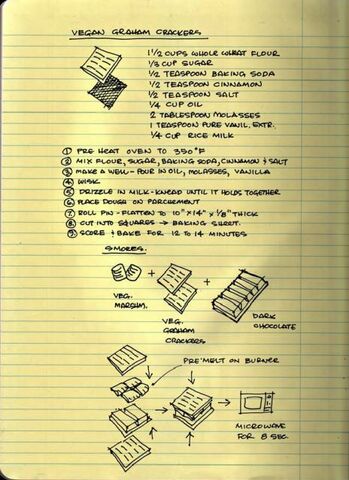 VEGAN GRAHAM CRACKERS
1 1/2 CUPS WHOLE WHEAT FLOUR
1/3 CUP SUGAR
1/2 TEASPOON BAKING SODA
1/2 TEASPOON CINNAMON
1/2 TEASPOON SALT
1/4 CUP OIL
2 TABLESPOON MOLASSES
1 TEASPOON PURE VANIL. EXTR.
1/4 CUP RICE MILK
① PRE HEAT OVEN TO 350°F
② MIX FLOUR, SUGAR, BAKING SODA, CINNAMON & SALT
③ MAKE A WELL - POUR IN OIL, MOLASSES, VANILLA
④ WISK
⑤ DRIZZLE IN MILK - KNEAD UNTIL IT HOLDS TOGETHER
⑥ PLACE DOUGH ON PARCHEMENT
⑦ ROLL PIN - FLATTEN TO 10" x 14" x 1/8" THICK
⑧ CUT INTO SQUARES → BAKING SHEET.
⑨ SCORE & BAKE FOR 12 TO 14 MINUTES
SMORES.
VEG.
MARSHM.
+
VEG.
GRAHAM
CRACKERS
+
DARK
CHOCOLATE
PRE'MELT ON BURNER
MICROWAVE
FOR 8 SEC.